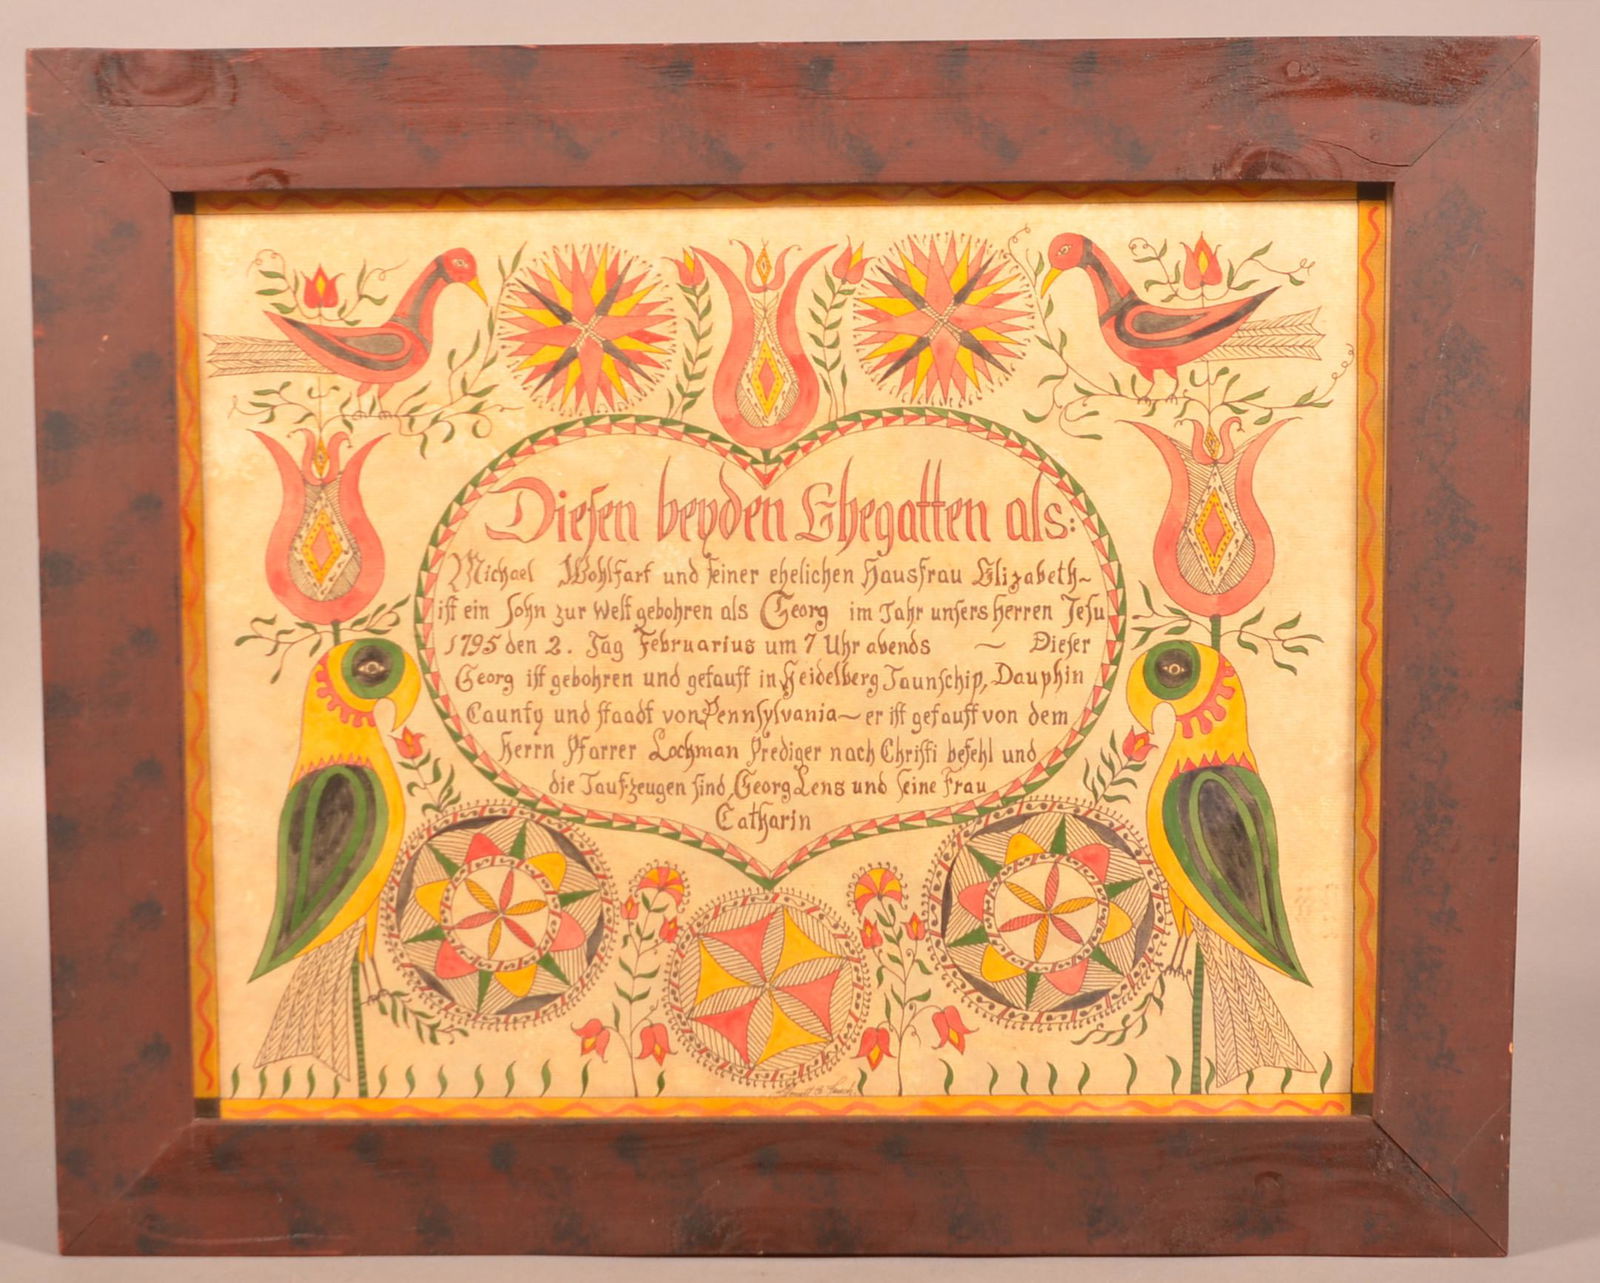 Diesen beyden Ehegatten als:
Michael Wohlfart und seiner ehelichen Hausfrau Elizabeth~
ist ein Sohn zur Welt gebohren als Georg im Jahr unsers Herren Jesu
1795 den 2. Tag Februarius um 7 Uhr abends ~ Dieser
Georg ist gebohren und getauft in Heidelberg Taunschip, Dauphin
Caunty und staadt von Pennsylvania~ er ist getauft von dem
Herrn Pfarrer Lochman Prediger nach Christi befehl und
die Taufzeugen sind Georg Lens und seine Frau
Catharin